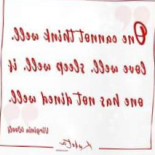 One cannot think well,
love well, sleep well, if
one has not dined well.
Virginia Woolf